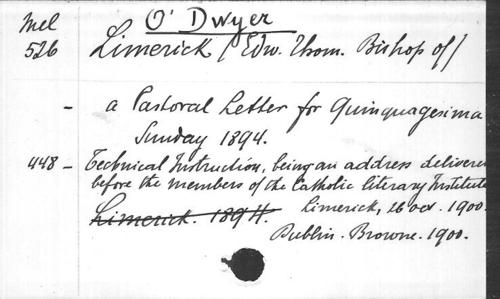 Mel O' Dwyer
526 Limerick / Edw. Thom. Bishop of /
- a Pastoral Letter for Quinquagesima
Sunday 1894.
448 - Technical Instruction, being an address delivere
before the members of the Catholic literary Institute
Limerick. 1894. Limerick, 26 oct. 1900.
Dublin. Browne. 1900.